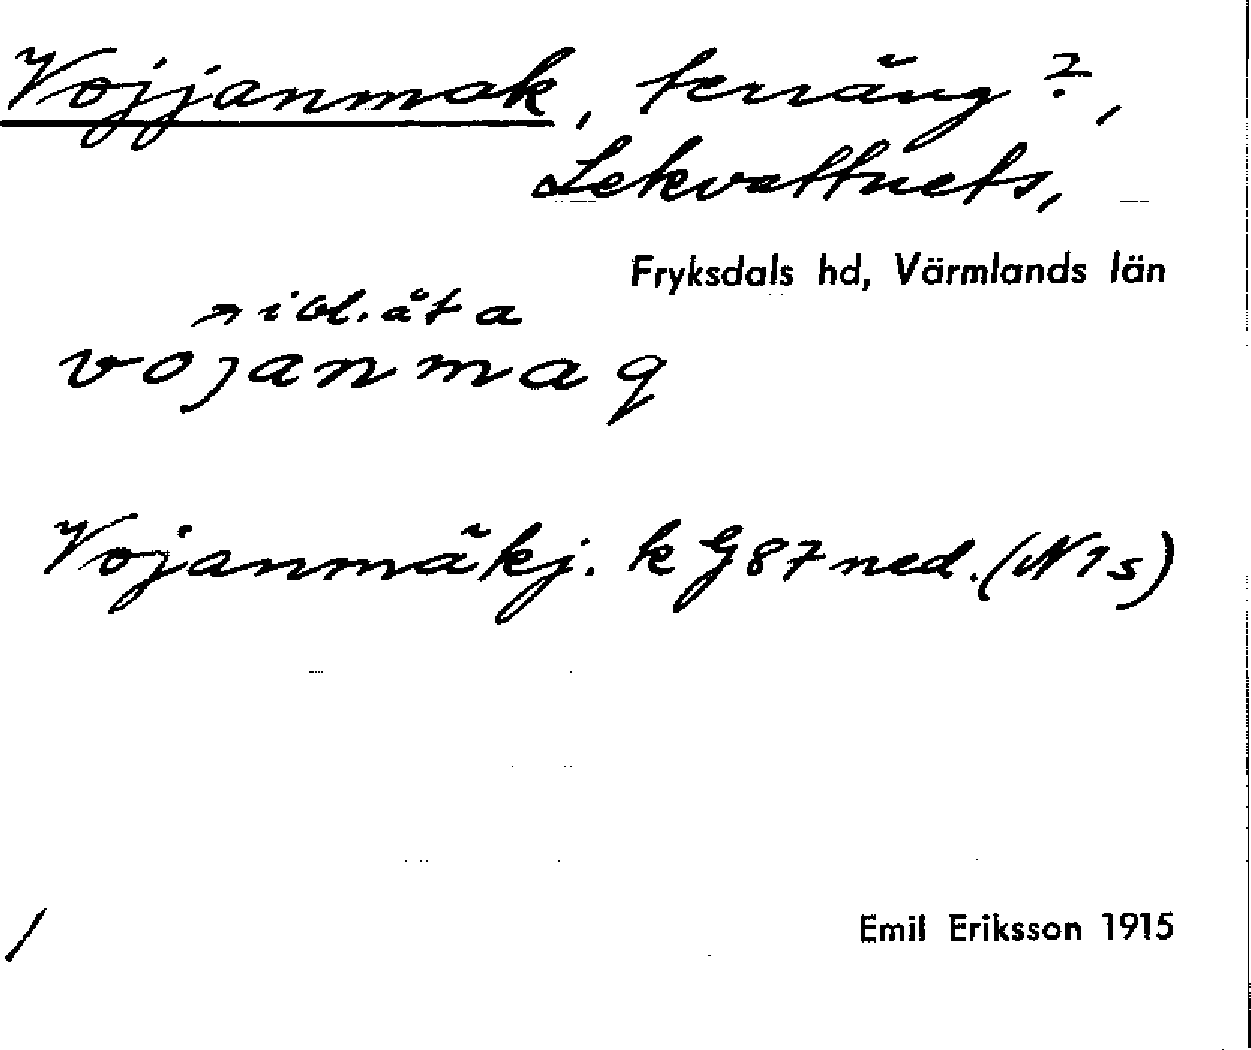 Vojjanmak, terräng?,
Lekvattnets,
Fryksdals hd, Värmlands län
vojanmaq
Vojanmäkj. k G87 ned. (N1s)
/
Emil Eriksson 1915